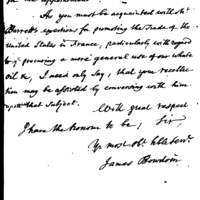 As you must be acquainted with Mr.
Barrett's exertions for promoting the Trade of the
United States in France, particularly with regard
to ye procuring a more general use of our whale
oil &c, I need only say, that your recollec-
tion may be assisted by conversing with him
upon that Subject.
With great respect
I have the honour to be, Sir
Yr most obt. hble servt.
James Bowdoin